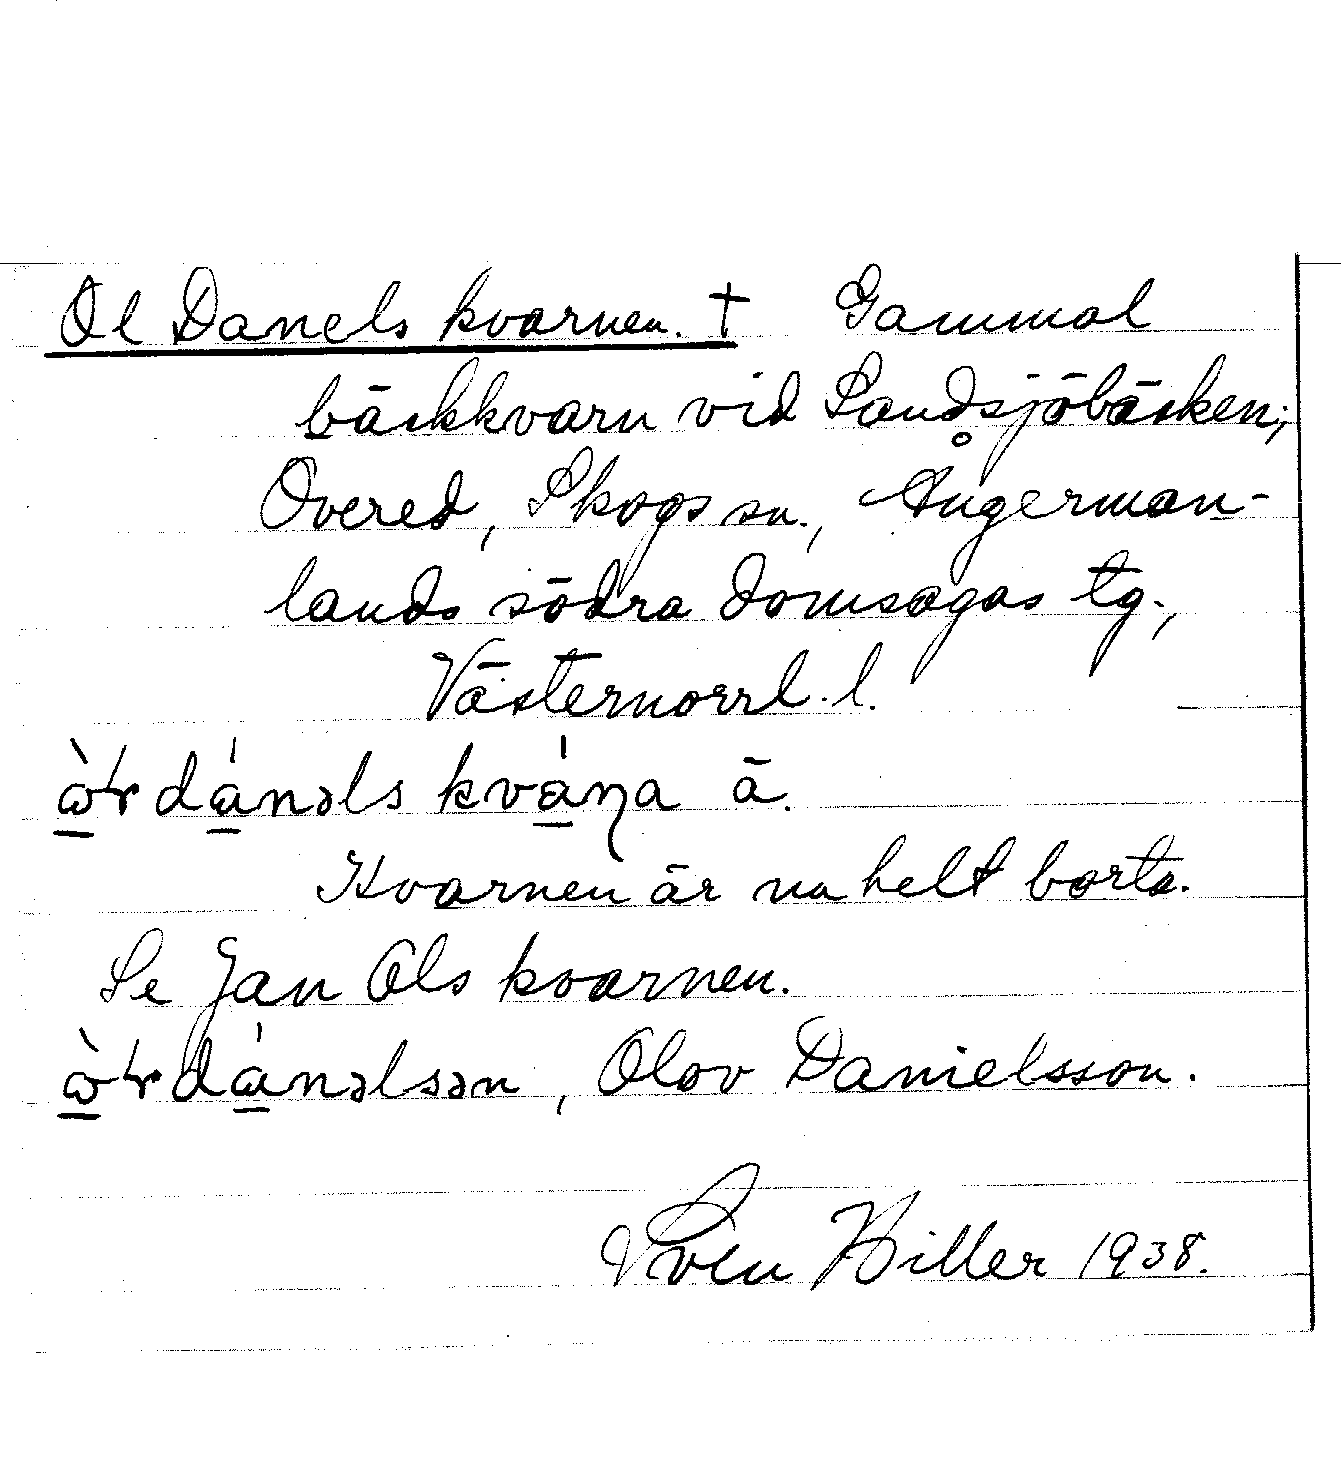 Ol Danels kvarnen. † Gammal
bäckkvarn vid Sandsjöbäcken;
Övered, Skogs sn., Ångerman-
lands södra domsagas tg.,
Västernorrl. l.
dánəls kváɳa ä.
Kvarnen är nu helt borta.
Se Jan Ols kvarnen.
dánəlsən, Olov Danielsson.
Sven Hiller 1938.